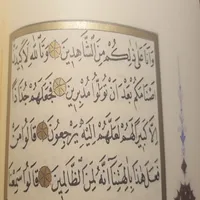 وَأَنَا عَلَىٰ ذَٰلِكُم مِّنَ الشَّاهِدِينَ وَتَاللَّهِ لَأَكِيدَنَّ
أَصْنَامَكُم بَعْدَ أَن تُوَلُّوا مُدْبِرِينَ فَجَعَلَهُمْ جُذَاذًا
إِلَّا كَبِيرًا لَّهُمْ لَعَلَّهُمْ إِلَيْهِ يَرْجِعُونَ قَالُوا مَن
فَعَلَ هَٰذَا بِآلِهَتِنَا إِنَّهُ لَمِنَ الظَّالِمِينَ قَالُوا سَمِعْنَا